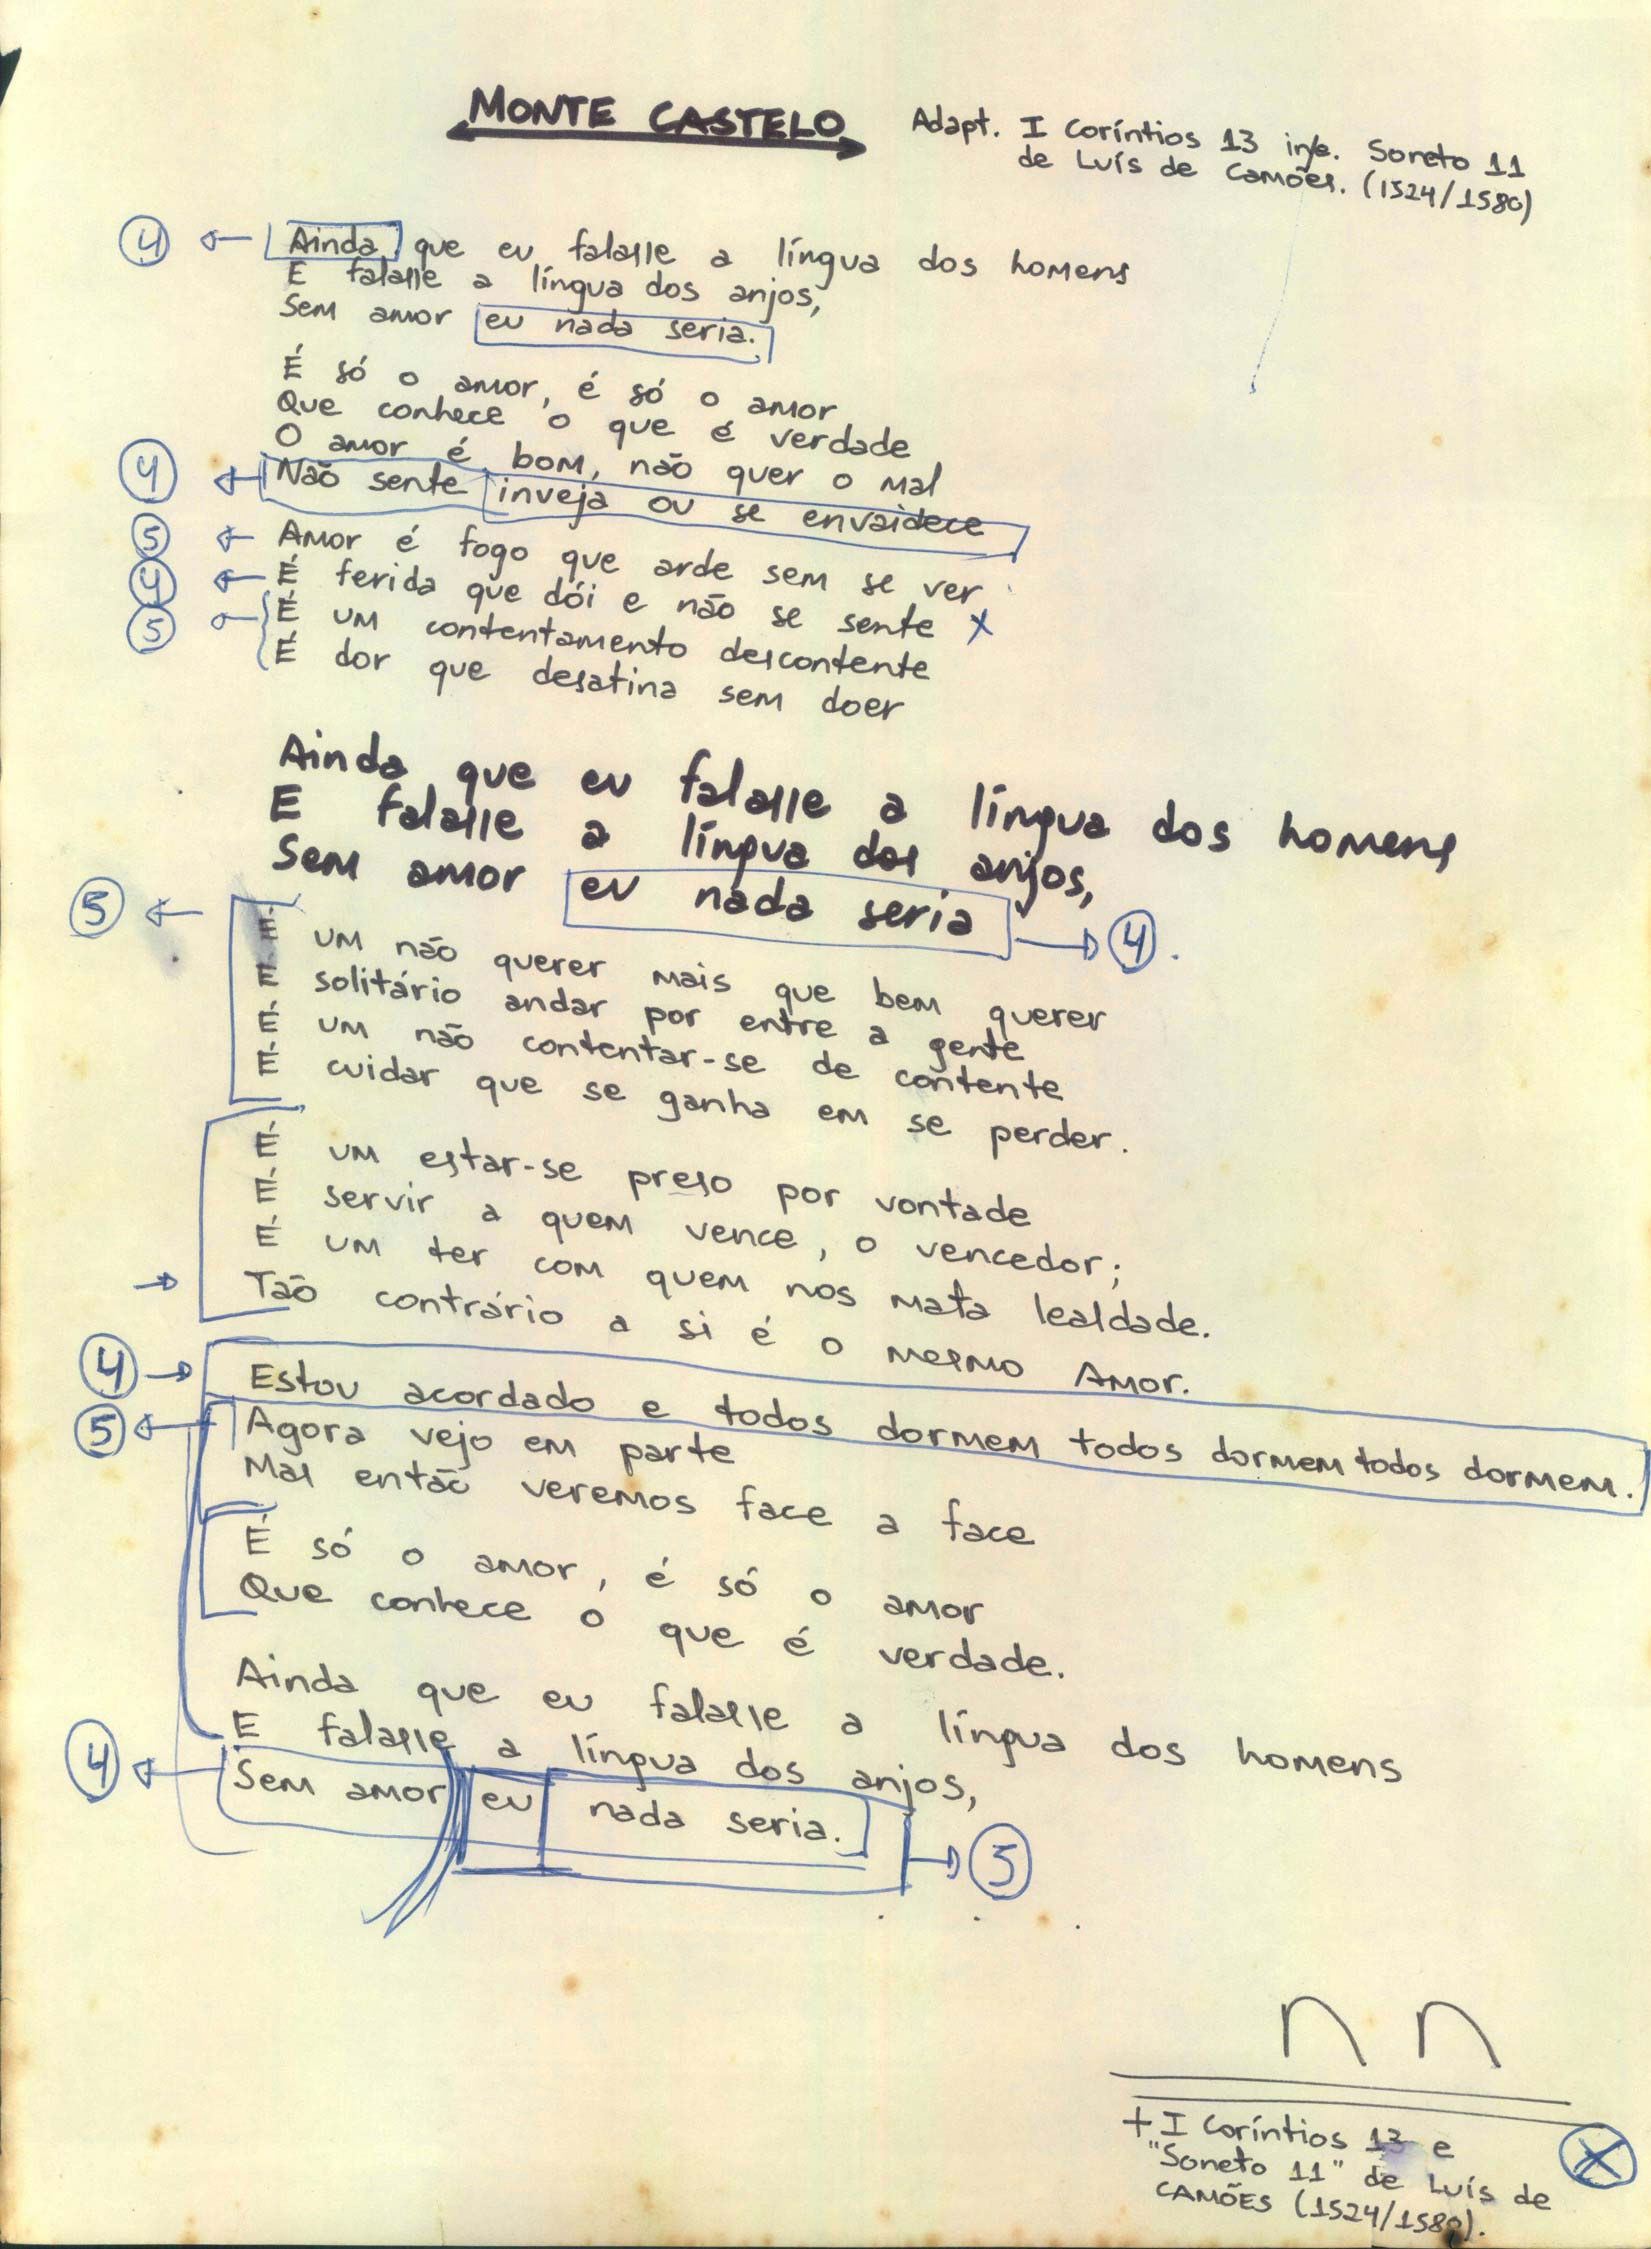 MONTE CASTELO
Adapt. I Coríntios 13 Soneto 11
de Luís de Camões. (1524/1580)
4 Ainda que eu falasse a língua dos homens
E falasse a língua dos anjos,
Sem amor eu nada seria.
É só o amor, é só o amor
Que conhece o que é verdade
O amor é bom, não quer o mal
4 Não sente inveja ou se envaidece
5 Amor é fogo que arde sem se ver
4 É ferida que dói e não se sente X
5 É um contentamento descontente
É dor que desatina sem doer
Ainda que eu falasse a língua dos homens
E falasse a língua dos anjos,
Sem amor eu nada seria 4
5 É um não querer mais que bem querer
É solitário andar por entre a gente
É um não contentar-se de contente
É cuidar que se ganha em se perder.
É um estar-se preso por vontade
É servir a quem vence, o vencedor;
É um ter com quem nos mata lealdade.
Tão contrário a si é o mesmo Amor.
4 Estou acordado e todos dormem todos dormem todos dormem.
5 Agora vejo em parte
Mas então veremos face a face
É só o amor, é só o amor
Que conhece o que é verdade.
Ainda que eu falasse a língua dos homens
E falasse a língua dos anjos,
4 Sem amor eu nada seria. 5
+ I Coríntios 13 e
"Soneto 11" de Luís de
CAMÕES (1524/1580).